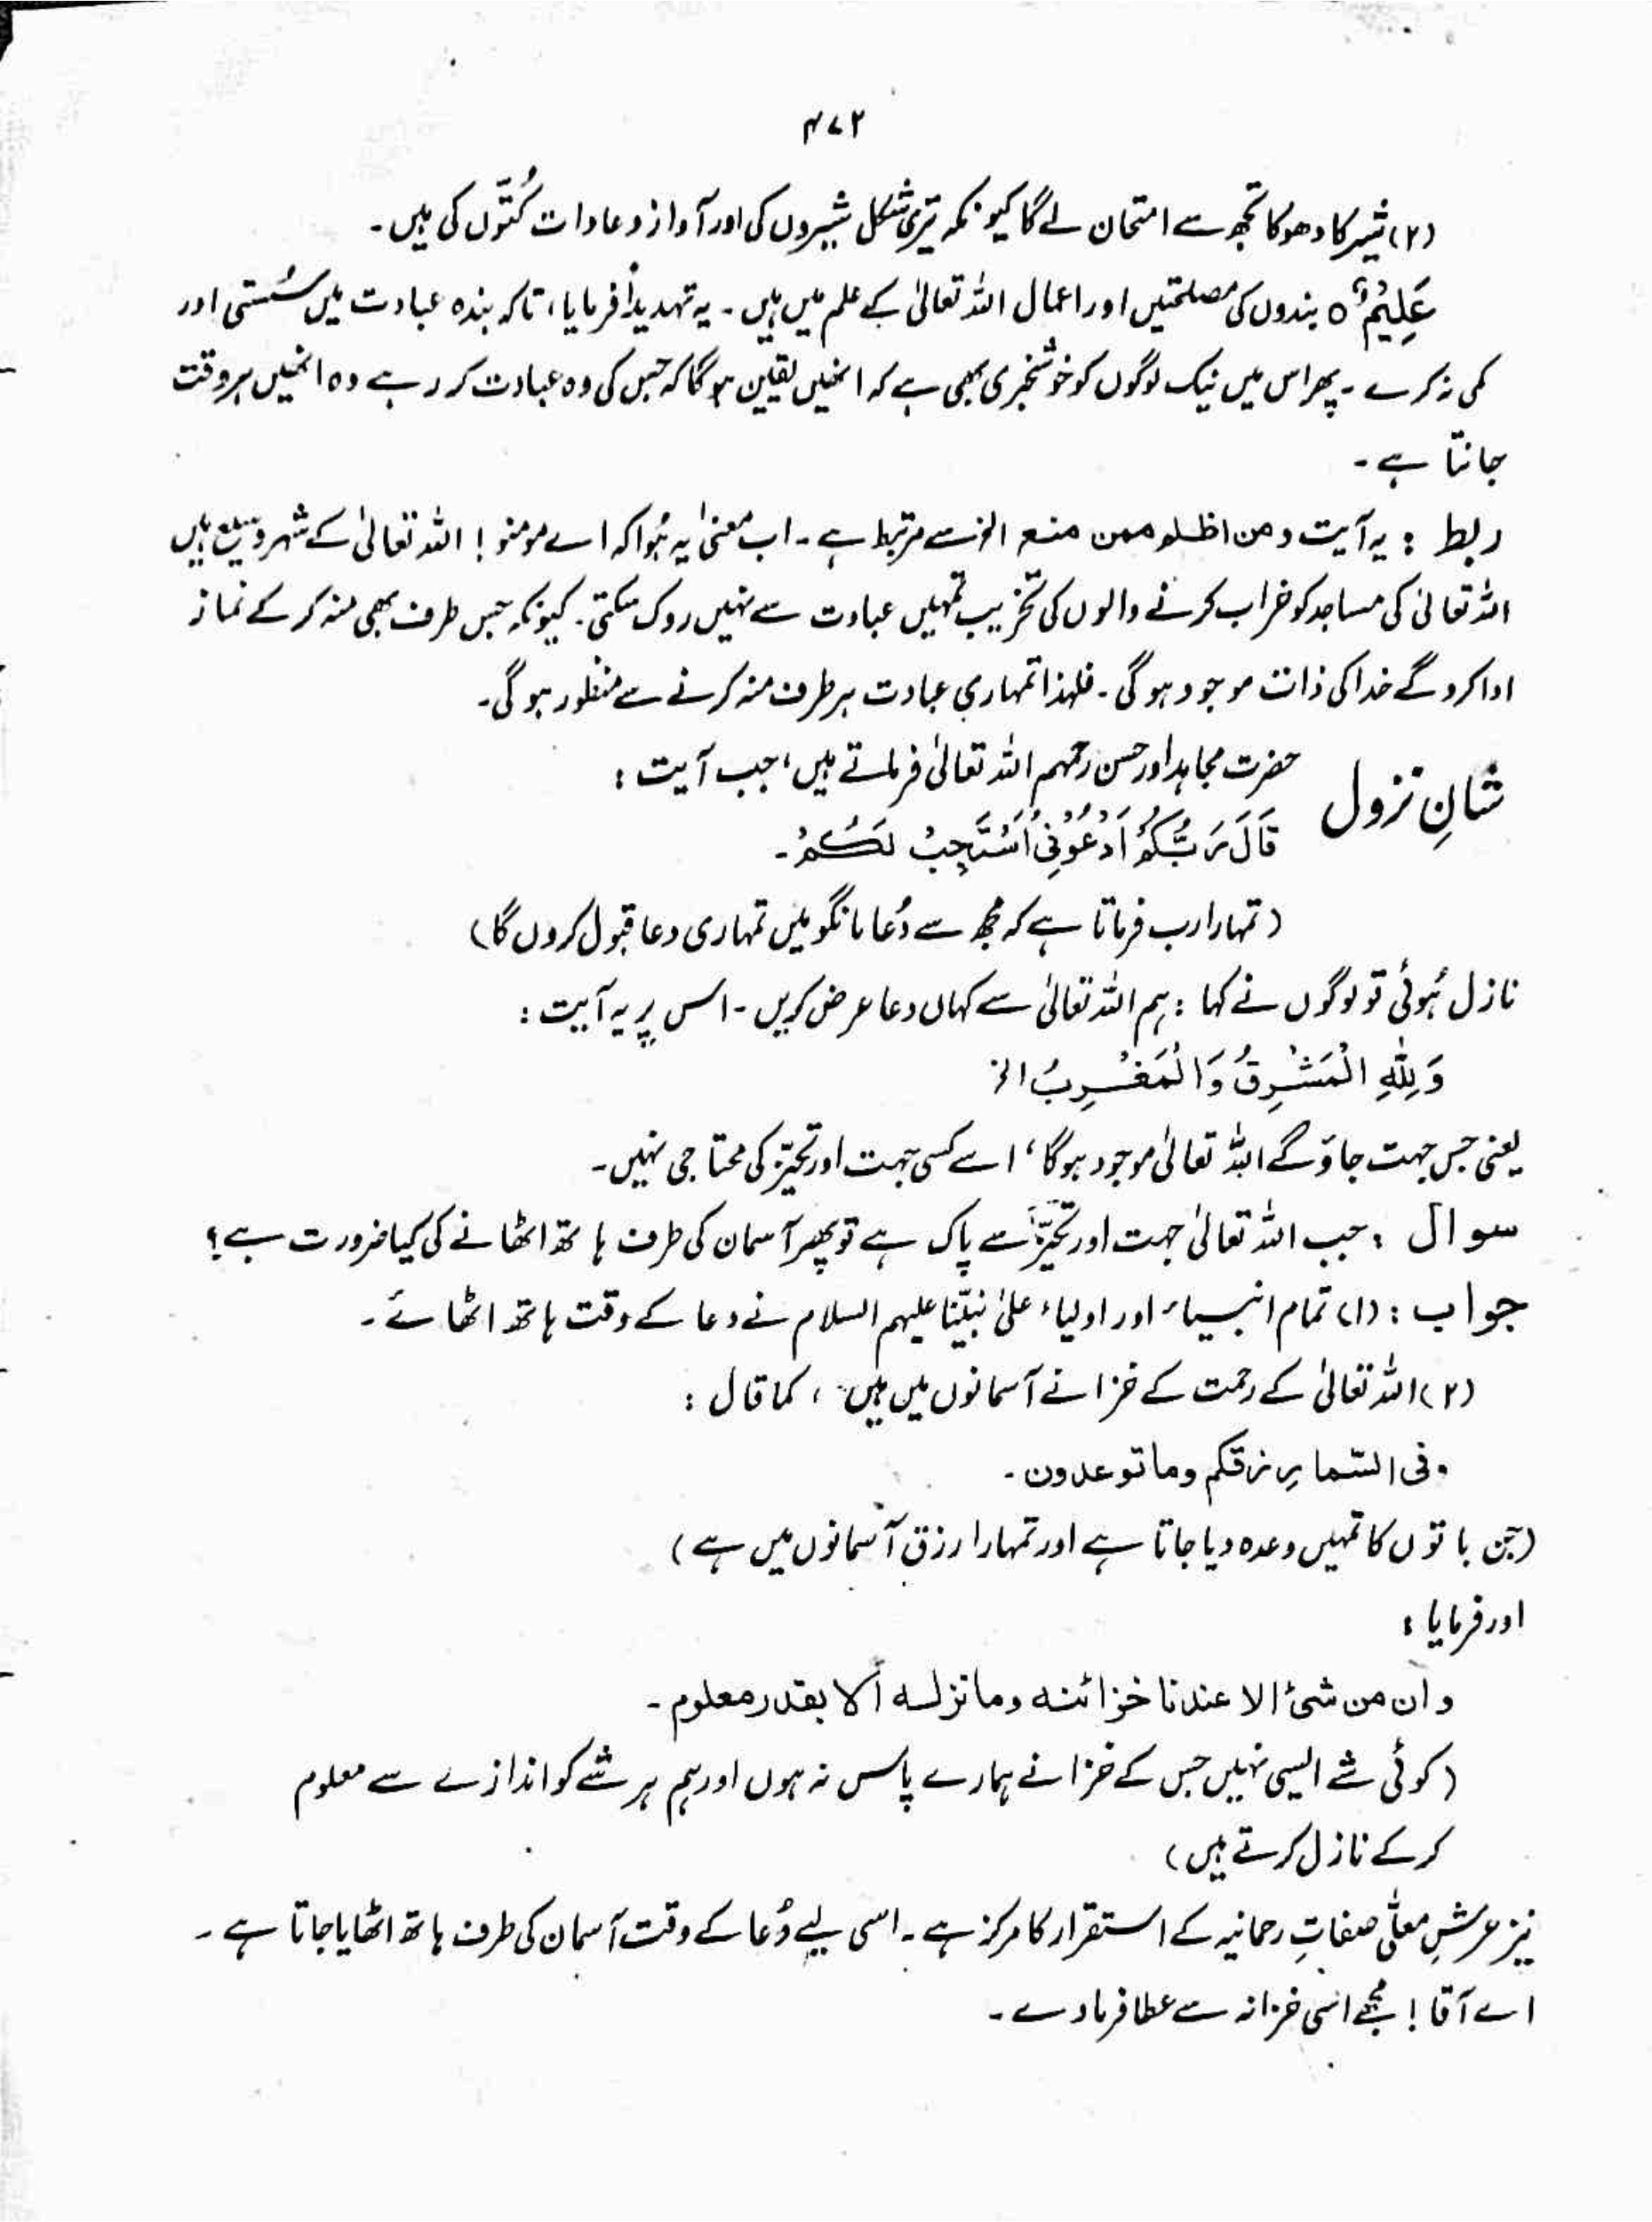 ۴۷۲
(۲) شیر کا دھوکا تجھ سے امتحان لے گا کیونکہ تیری شکل شیروں کی اور آواز و عادات کُتّوں کی ہیں۔
عَلِیْمٌ ○ بندوں کی مصلحتیں اور اعمال اللہ تعالیٰ کے علم میں ہیں۔ یہ تہدیداً فرمایا، تاکہ بندہ عبادت میں سُستی اور
کمی نہ کرے۔ پھر اس میں نیک لوگوں کو خوشخبری بھی ہے کہ انھیں یقین ہوگا کہ جس کی وہ عبادت کر رہے وہ انھیں ہر وقت
جانتا ہے۔
ربط : یہ آیت ومن اظلم ممن منع الخ سے مرتبط ہے۔ اب معنیٰ یہ ہُوا کہ اے مومنو! اللہ تعالیٰ کے شہر وسیع ہیں
اللہ تعالیٰ کی مساجد کو خراب کرنے والوں کی تخریب تمہیں عبادت سے نہیں روک سکتی۔ کیونکہ جس طرف بھی منہ کر کے نماز
ادا کرو گے خدا کی ذات موجود ہوگی۔ فلہذا تمہاری عبادت ہر طرف منہ کرنے سے منظور ہوگی۔
شانِ نزول حضرت مجاہد اور حسن رحمہم اللہ تعالیٰ فرماتے ہیں، جب آیت :
قَالَ رَبُّکُمُ ادْعُوْنِیْ اَسْتَجِبْ لَکُمْ۔
(تمہارا رب فرماتا ہے کہ مجھ سے دُعا مانگو میں تمہاری دعا قبول کروں گا)
نازل ہُوئی تو لوگوں نے کہا : ہم اللہ تعالیٰ سے کہاں دعا عرض کریں۔ اس پر یہ آیت :
وَلِلّٰہِ الْمَشْرِقُ وَالْمَغْرِبُ الخ
یعنی جس جہت جاؤ گے اللہ تعالیٰ موجود ہوگا، اسے کسی جہت اور تحیّز کی محتاجی نہیں۔
سوال : جب اللہ تعالیٰ جہت اور تحیّز سے پاک ہے تو پھر آسمان کی طرف ہاتھ اٹھانے کی کیا ضرورت ہے؟
جواب : (۱) تمام انبیاء اور اولیاء علیٰ نبیّنا علیہم السلام نے دعا کے وقت ہاتھ اٹھائے۔
(۲) اللہ تعالیٰ کے رحمت کے خزانے آسمانوں میں ہیں، کما قال :
وفی السّماء رزقکم وما توعدون۔
(جن باتوں کا تمہیں وعدہ دیا جاتا ہے اور تمہارا رزق آسمانوں میں ہے)
اور فرمایا :
وان من شیٔ الا عندنا خزائنہ وما نزلہ الا بقدر معلوم۔
(کوئی شے ایسی نہیں جس کے خزانے ہمارے پاس نہ ہوں اور ہم ہر شے کو اندازے سے معلوم
کر کے نازل کرتے ہیں)
نیز عرشِ معلّٰی صفاتِ رحمانیہ کے استقرار کا مرکز ہے۔ اسی لیے دُعا کے وقت آسمان کی طرف ہاتھ اٹھایا جاتا ہے۔
اے آقا! مجھے اسی خزانہ سے عطا فرما دے۔